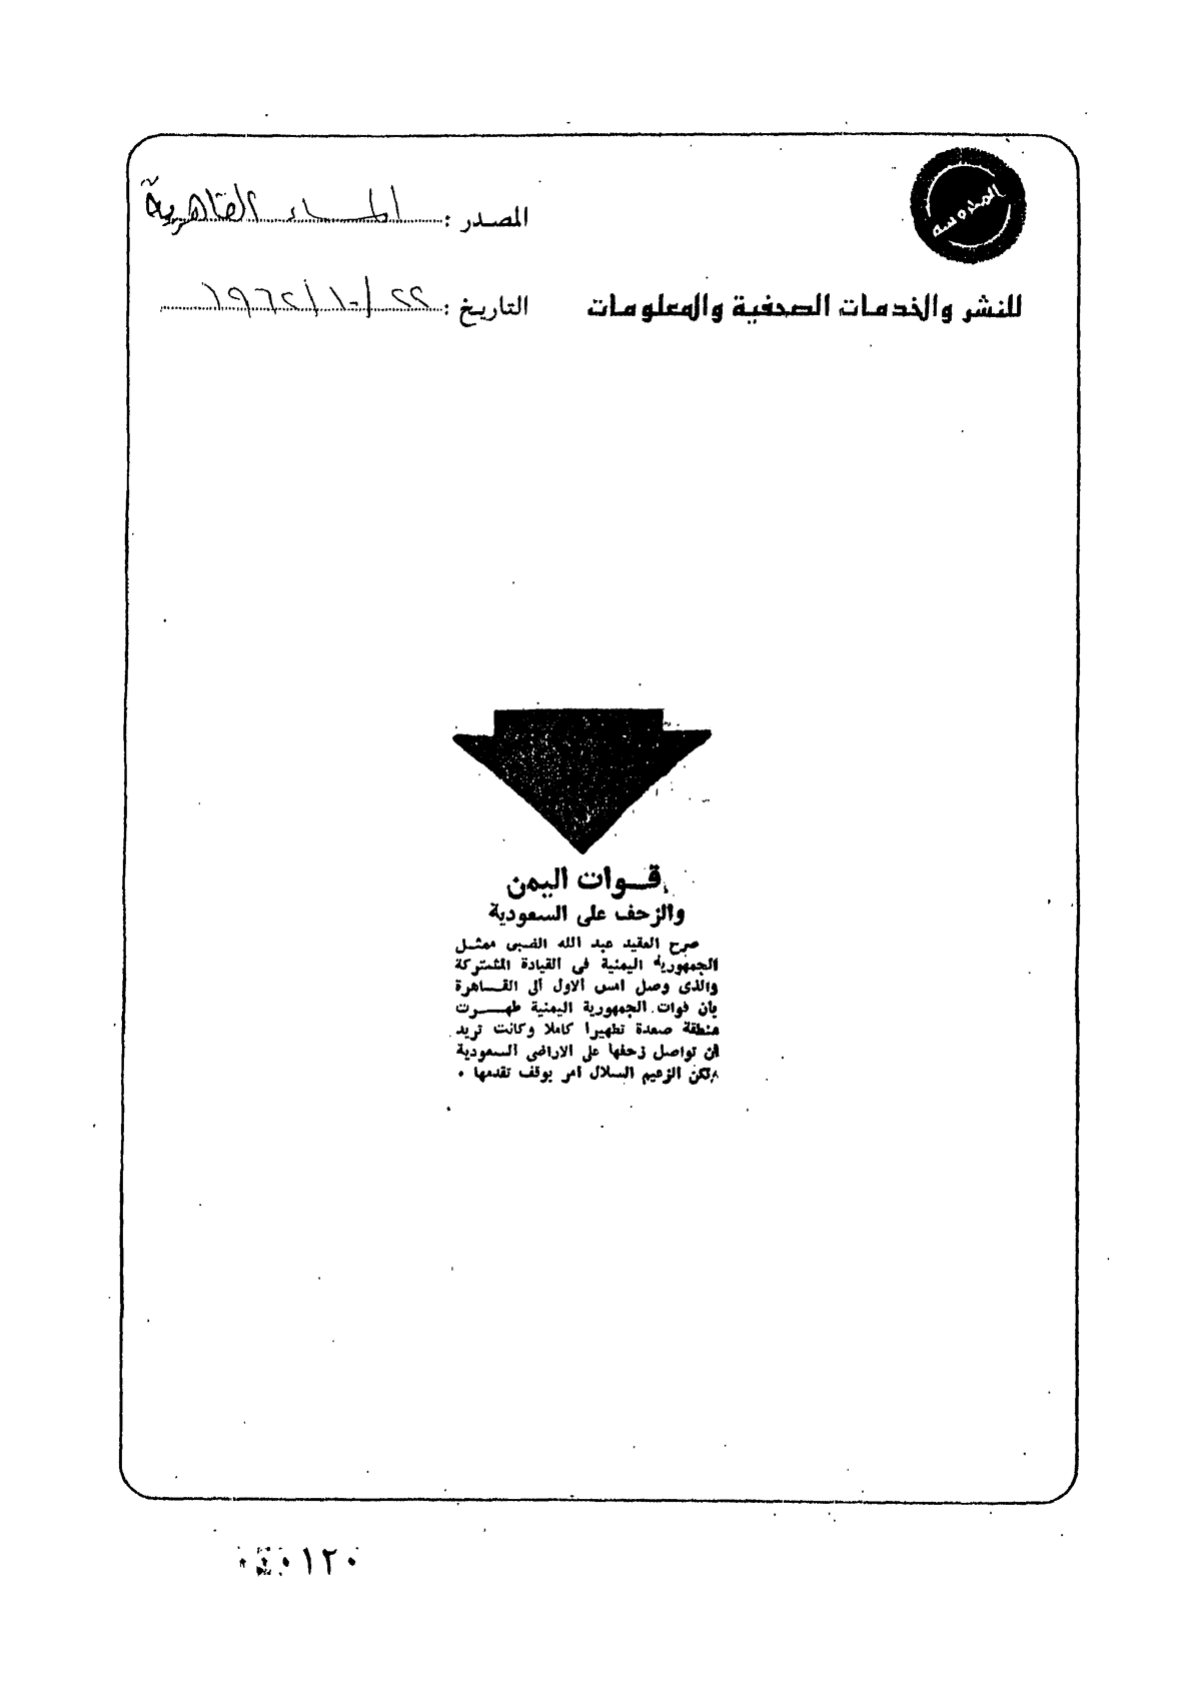 المصدر : المساء القاهرية
للنشر والخدمات الصحفية والمعلومات
التاريخ : ٢٢/١٠/١٩٦٢
قــوات اليمن
والزحف على السعودية
صرح العقيد عبد الله الضبى ممثــل
الجمهورية اليمنية فى القيادة المشتركة
والذى وصل امس الاول الى القــاهرة
بأن قوات الجمهورية اليمنية طهـــرت
منطقة صعدة تطهيرا كاملا وكانت تريد
ان تواصل زحفها على الاراضى السعودية
ولكن الزعيم السلال امر بوقف تقدمها .
٠١٢٠